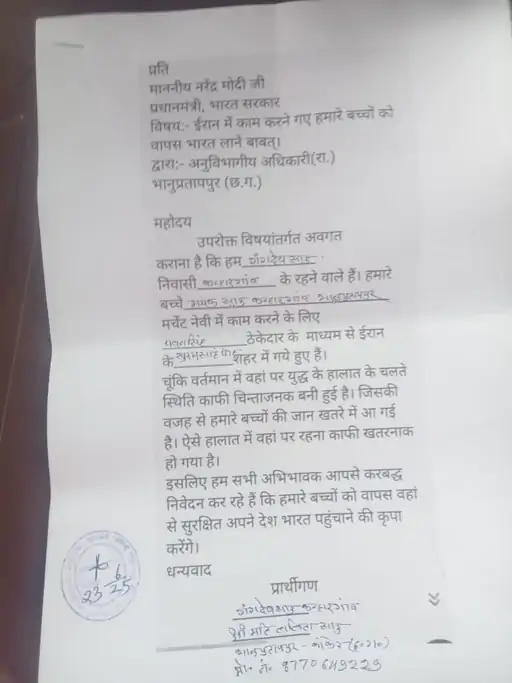 प्रति
माननीय नरेंद्र मोदी जी
प्रधानमंत्री, भारत सरकार
विषय:- ईरान में काम करने गए हमारे बच्चों को
वापस भारत लाने बाबत्।
द्वारा:- अनुविभागीय अधिकारी(रा.)
भानुप्रतापपुर (छ.ग.)
महोदय
उपरोक्त विषयांतर्गत अवगत
कराना है कि हम गंगदेव साहू
निवासी कन्हारगांव के रहने वाले हैं। हमारे
बच्चे साहू कन्हारगांव भानुप्रतापपुर
मर्चेंट नेवी में काम करने के लिए
ठेकेदार के माध्यम से ईरान
के शहर में गये हुए हैं।
चूंकि वर्तमान में वहां पर युद्ध के हालात के चलते
स्थिति काफी चिन्ताजनक बनी हुई है। जिसकी
वजह से हमारे बच्चों की जान खतरे में आ गई
है। ऐसे हालात में वहां पर रहना काफी खतरनाक
हो गया है।
इसलिए हम सभी अभिभावक आपसे करबद्ध
निवेदन कर रहे हैं कि हमारे बच्चों को वापस वहां
से सुरक्षित अपने देश भारत पहुंचाने की कृपा
करेंगे।
धन्यवाद
23 6 25
प्रार्थीगण
गंगदेव साहू कन्हारगांव
श्रीमति ललिता साहू
भानुप्रतापपुर - कांकेर (छ०ग०)
मो. नं. 8770649229